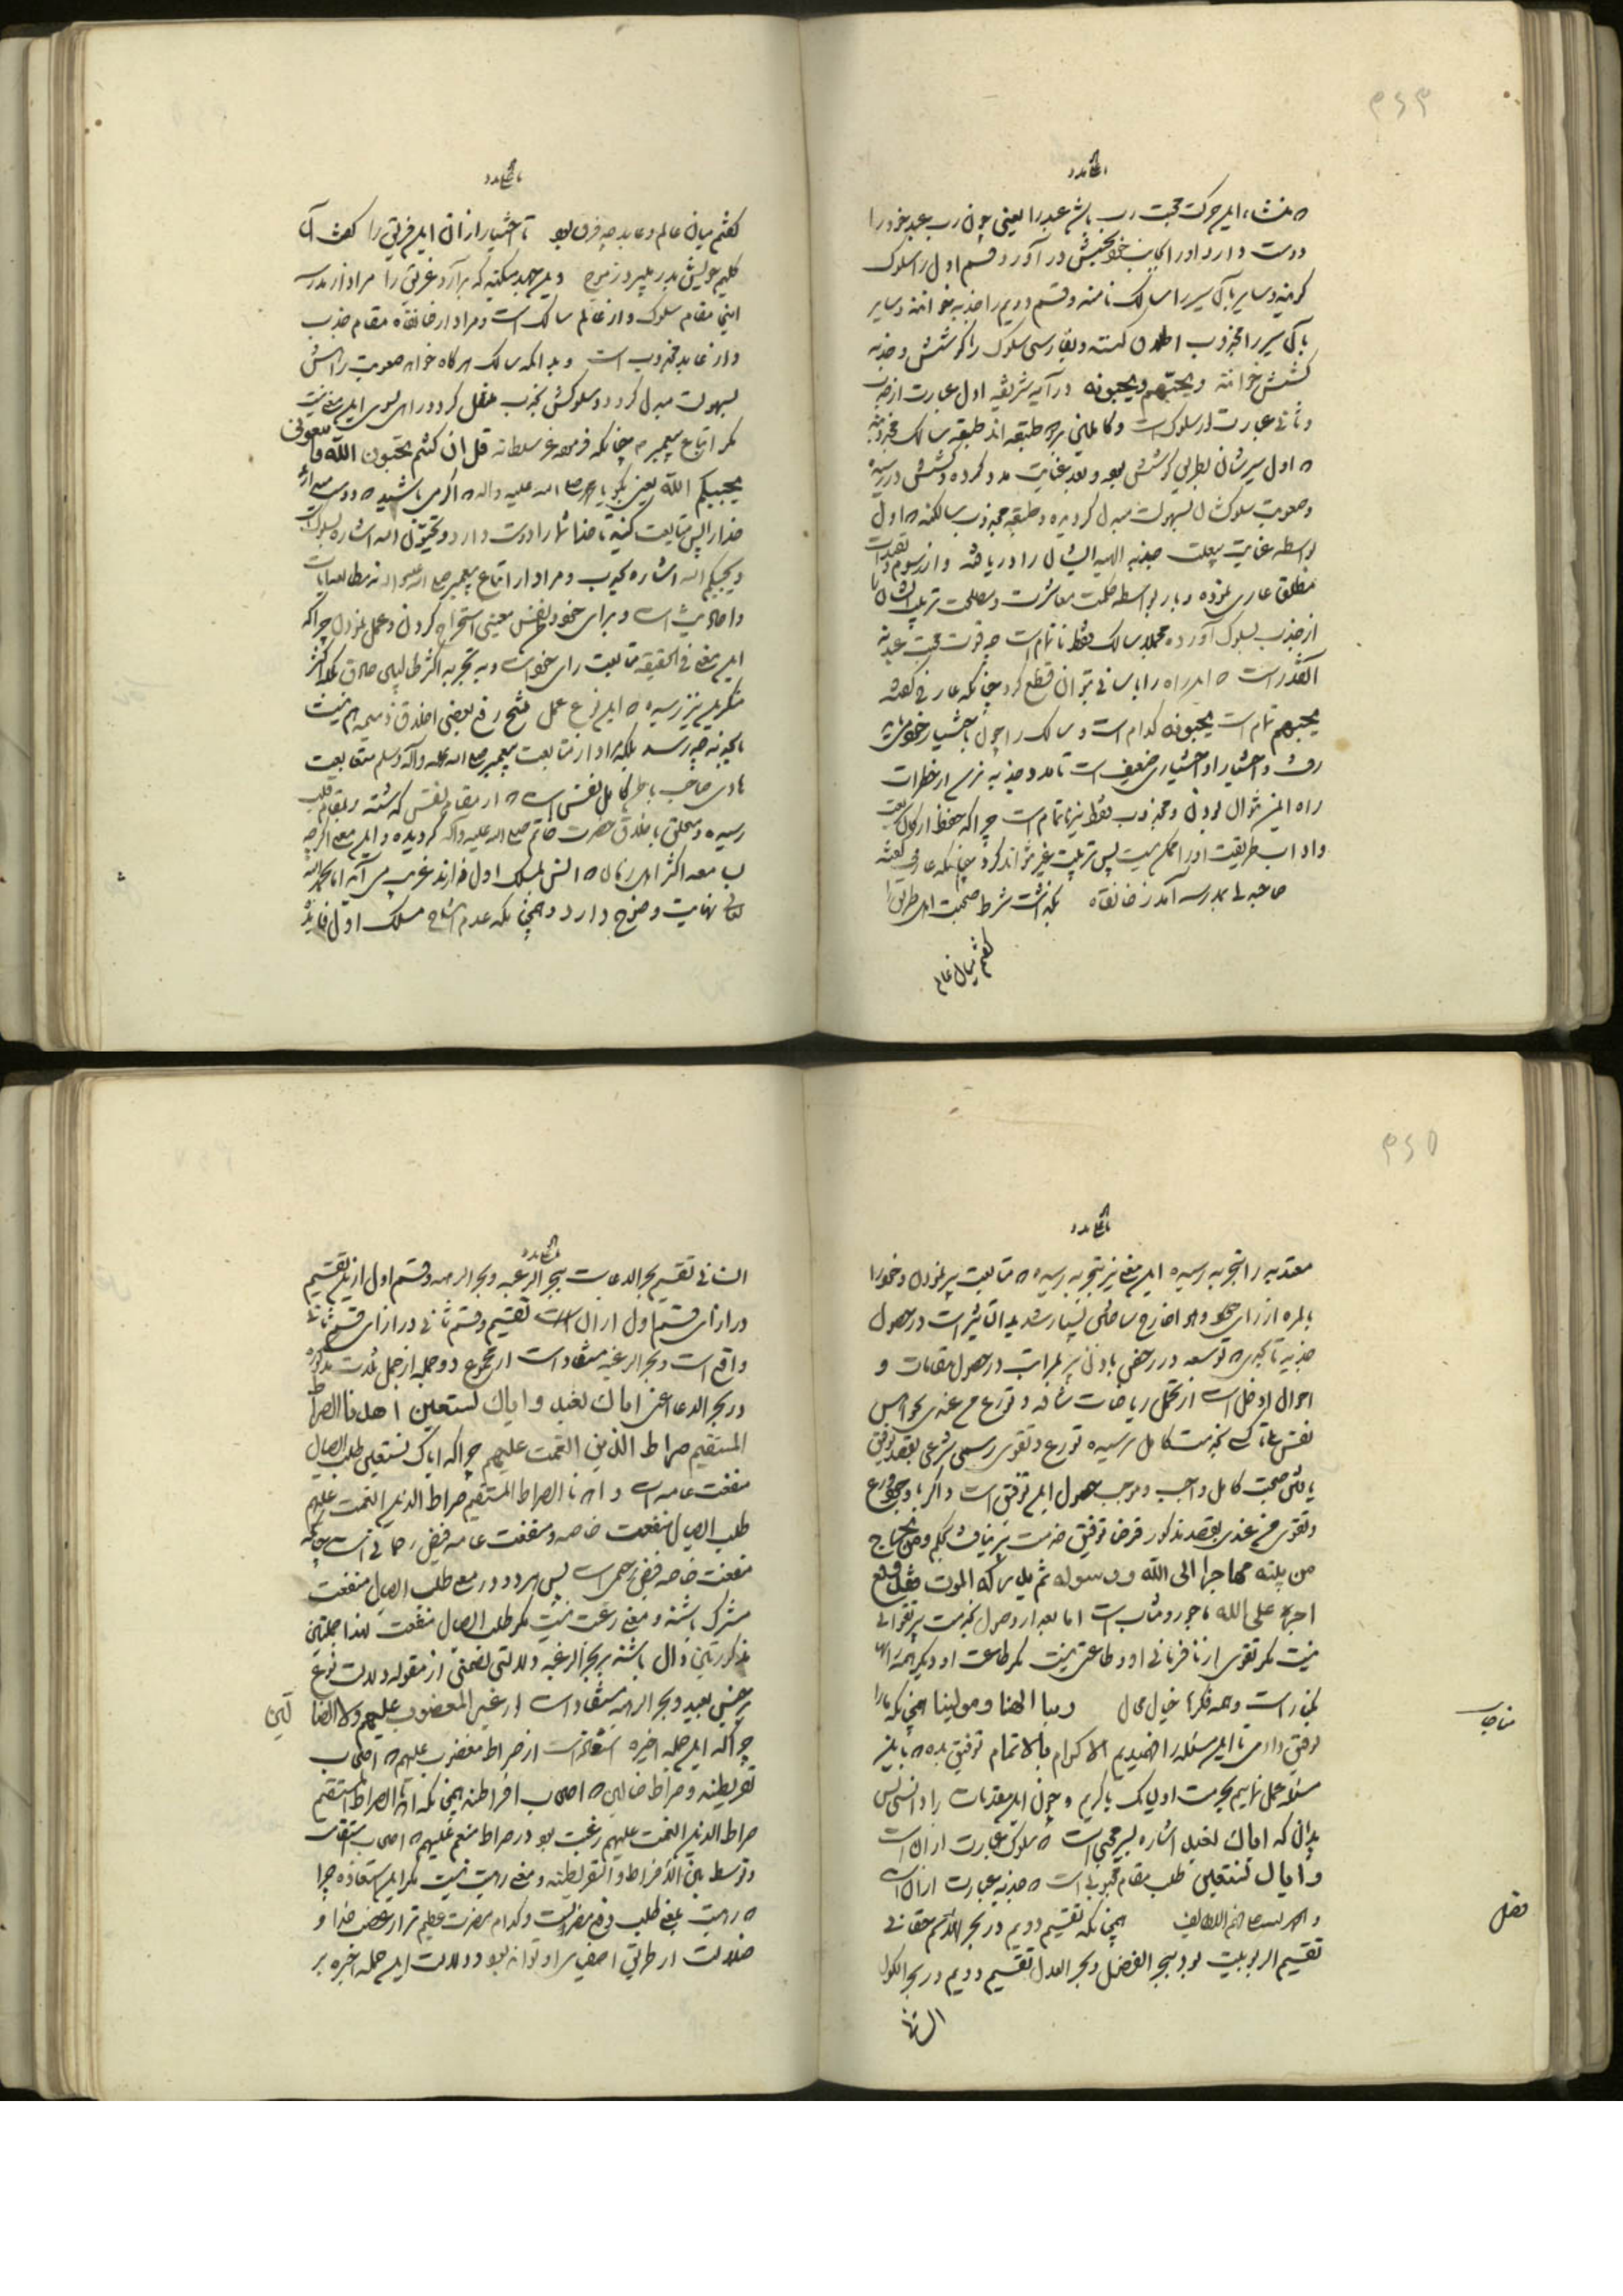 که منشاء این حرکت محبت رب باشد عبد را یعنی چون رب عبد خود را
دوست دارد او را بجانب خود بجنبش در آورد قسم اول را سلوک
و سایر بآن سیر را سالک نامند و قسم دویم را جذبه خوانند و سایر
بآن سیر را مجذوب و بفارسی سلوک را کوشش و جذبه
کشش خوانند و یحبهم و یحبونه در آیه شریفه اول عبارت از جذب
و ثانی عبارت از سلوک است و کاملین طبقه اند طبقه سالک مجذوبند
که اول سیرشان بطریق کوشش بود و بعد عنایت مدد کرده کشش در رسیده
و صعوبت سلوکشان بسهولت مبدل گردیده و طبقه مجذوب سالکند که اول
بواسطه عنایت جذبه الهیه ایشان را دریافته و از رسوم و
مطلق عاری نموده و باز بواسطه حکمت معاشرت و مصلحت تربیت ایشان را
از جذب بسلوک آورده مجملا سالک فقط ناتمام است چه قوت محبت عبد نه
آنقدر است که این راه را بآسانی توان قطع کرد چنانکه عارفی گفته
یحبهم تمام است یحبونه کدام است و سالک را چون باختیار خود
و اختیار او اختیاری ضعیف است تا مدد جذبه نرسد از خطرات
راه ایمن نتوان بودن و مجذوب فقط نیز ناتمام است چرا که حفظ ارکان
و آداب طریقت او را محکم نیست پس تربیت غیر نتواند کرد چنانکه عارفی گفته
صاحبدلی بمدرسه آمد ز خانقاه بگذشت شرط صحبت اهل طریق را
گفتم میان عالم
گفتم میان عالم و عابد چه فرق بود تا اختیار از آن این فریق را گفت آن
گلیم خویش بدر میبرد ز موج وین جهد میکند که برآرد غریق را مراد از مدرسه
اینجا مقام سلوک و از عالم سالک است و مراد از خانقاه مقام جذب
و از عابد مجذوب است و بدانکه سالک هرگاه خواهد صعوبت راهش
بسهولت مبدل گردد و سلوکش بجذب منتقل گردد راهی بسوی این معنی نیست
مگر اتباع پیمبر چنانکه فرموده عز سلطانه قل ان کنتم تحبون الله فاتبعونی
یحببکم الله یعنی بگو یا محمد صلی الله علیه و آله که اگر می باشید که دوست میدارید
خدا را پس متابعت کنید تا خدا شما را دوست دارد و تحبون الله اشاره بسلوک است
و یحببکم الله اشاره بجذب و مراد از اتباع پیغمبر نه مطالعه آیات
و احادیث است و برای خود و نفس معنی استخراج کردن و عمل نمودن چرا که
این معنی فی الحقیقه متابعت رای خود است و به تجربه اکثر طالبین صادق
رسیده که این نوع عمل منتج رفع بعضی اخلاق ذمیمه هم نیست
تا بجذبه چه رسد بلکه مراد از متابعت پیغمبر صلی الله علیه و آله و سلم متابعت
هادی صاحب باطن کامل نفسی است که از مقام نفس گذشته و بمقام قلب
رسیده و متخلق باخلاق حضرت خاتم صلی الله علیه و آله گردیده و این معنی اگر چه
اکثر اهل زمان که انس بمسلک اول دارند غریب می آید اما بحمد الله
تعالی نهایت وضوح دارد و همچنانکه عدم انتاج مسلک اول فائده
معتد به را بتجربه رسیده این معنی نیز بتجربه رسیده که متابعت پیر نمودن و خود را
بالمره از رای خود بسیار شدید التاثیر است در حصول
جذبه تا بحدی که توسعه در رخص باذن پیر بمراتب در حصول مقامات و
احوال ادخل است از تحمل ریاضات شاقه و تورع من عندی بهواجس
نفس کسی بخدمت کامل نرسیده تورع و تقوی رسمی شرعی بقصد توفیق
یافتن صحبت کامل واجب و موجب حصول این توفیق است و اگر با وجود تورع
و تقوی من عندی بقصد مذکور فرضا توفیق خدمت پیر نیافت بحکم و من یخرج
من بیته مهاجرا الی الله و رسوله ثم یدرکه الموت فقد وقع
اجره علی الله ماجور و مثاب است اما بعد از وصول بخدمت پیر تقوائی
نیست مگر تقوی از نافرمانی او و طاعتی نیست مگر طاعت او
و همه فکرها خیال محال ربنا الهنا و مولینا همچنانکه ما را
توفیق دادی تا این مسئله را فهمیدیم الاکرام بالاتمام توفیق بده که باین
مسئله عمل نمائیم بحرمت اولیائک یا کریم و چون این مقدمات را دانستی پس
بدان که ایاک نعبد اشاره بسیر محبی است که سلوک عبارت از آن است
و ایاک نستعین طلب مقام محبوبی است که جذبه عبارت از آن است
همچنانکه تقسیم دویم در بحر
تقسیم الربوبیت بود ببحر الفضل و بحر العدل تقسیم دویم در بحر
الثانی
الثانی تقسیم بحر الدعا است ببحر الرغبه و بحر الرهبه و قسم اول از این تقسیم
در ازای قسم اول از آن تقسیم و قسم ثانی در ازای قسم ثانی
واقع است و بحر الرغبه مستفاد است از مجموع دو جمله از جمل ثلث مذکوره
در بحر الدعا اعنی ایاک نعبد و ایاک نستعین اهدنا الصراط
المستقیم صراط الذین انعمت علیهم چرا که ایاک نستعین طلب ایصال
منفعت عامه است و اهدنا الصراط المستقیم صراط الذین انعمت علیهم
طلب ایصال منفعت خاصه و منفعت عامه فیض رحمانی است چنانکه
منفعت خاصه فیض رحیمی است پس هر دو در معنی طلب ایصال منفعت
مشترک باشند و معنی رغبت نیست مگر طلب ایصال منفعت لهذا جملتین
مذکورتین دال باشند بر بحر الرغبه و دلالتی تضمنی از مقوله دلالت نوع
بر جنس بعید و بحر الرهبه مستفاد است از غیر المغضوب علیهم ولا الضا لین
چرا که این جمله اخیره استعاذه است از صراط مغضوب علیهم که اصحاب
تفریطند و صراط ضالین که اصحاب افراطند همچنانکه اهدنا الصراط المستقیم
صراط الذین انعمت علیهم رغبت بود در صراط منعم علیهم که اصحاب استقامت
و توسط بین الافراط و التفریطند و معنی رهبت نیست مگر این استعاذه چرا
که رهبت یعنی طلب دفع مضرت و کدام مضرت عظیم تر از غضب خدا و
ضلالت از طریق اصفیای او تواند بود و دلالت این جمله اخیره بر
مناجات
فصل